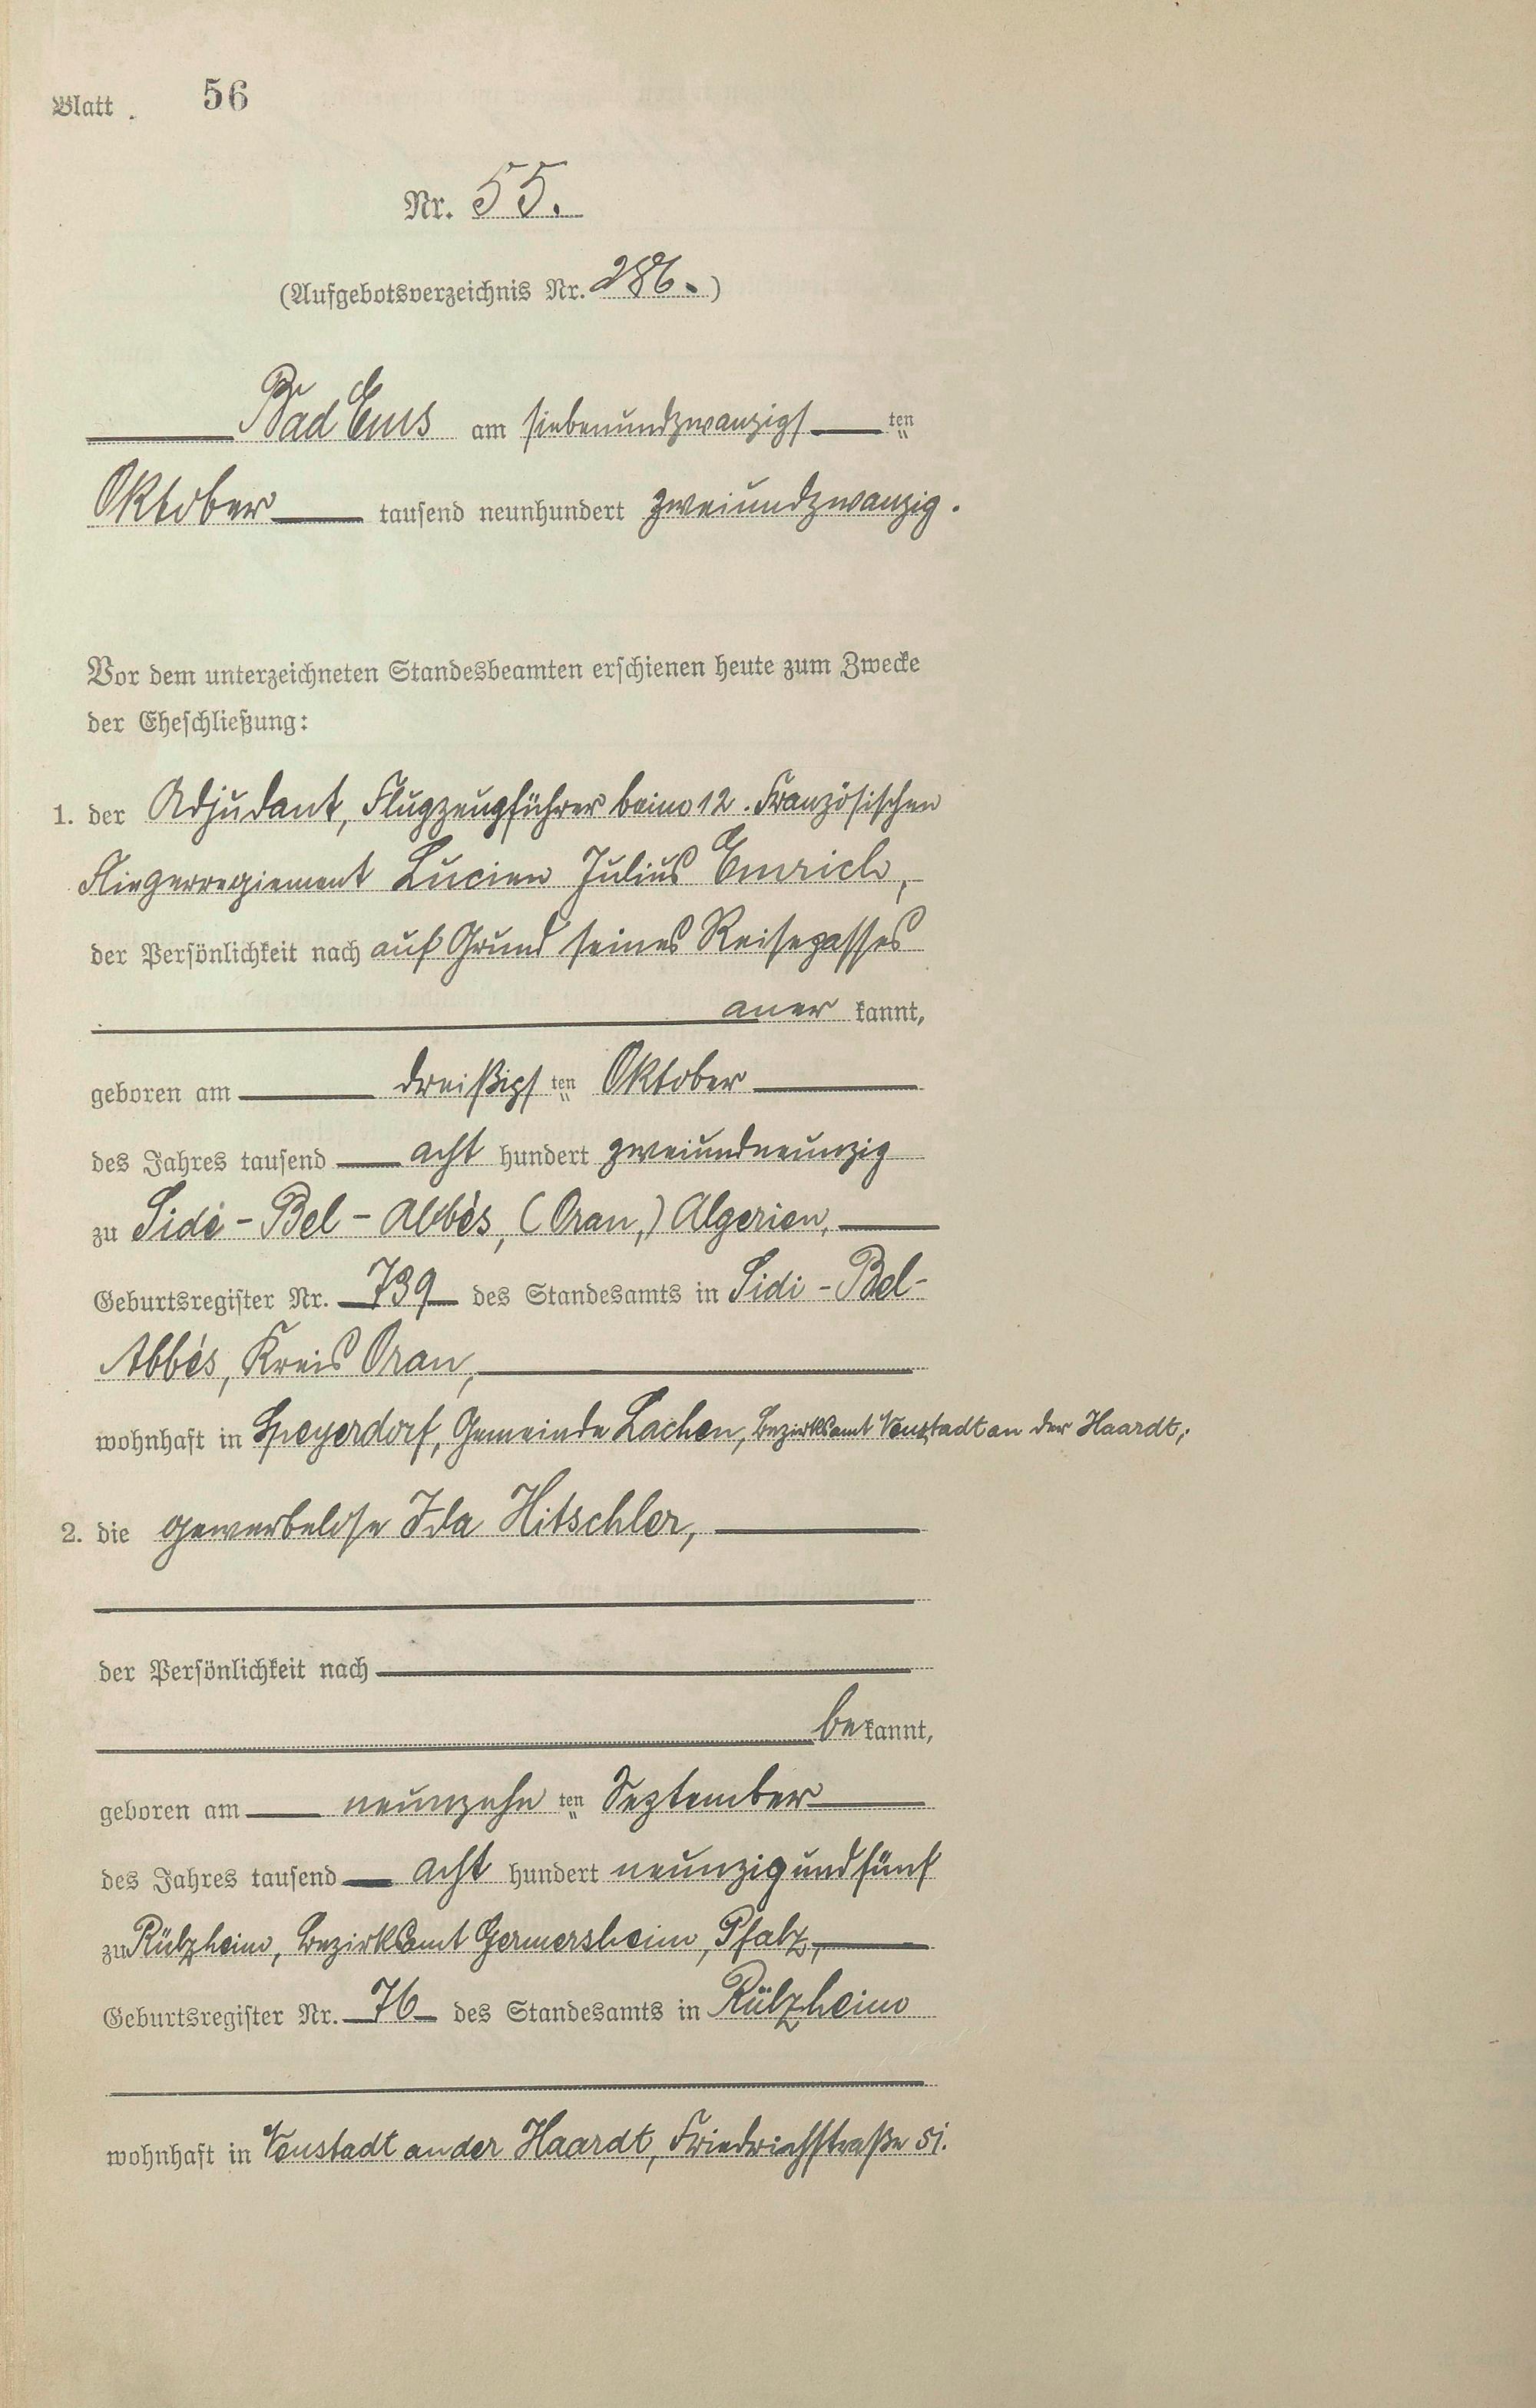 Blatt . 56
Nr. 55.
(Aufgebotsverzeichnis Nr. 286.)
Bad Ems am siebenundzwanzigs ten
Oktober tausend neunhundert zweiundzwanzig.
Vor dem unterzeichneten Standesbeamten erschienen heute zum Zwecke
der Eheschließung:
1. der Adjudant, Flugzeugführer beim 12. Französischen
Fliegerregiement Lucien Julius Emrich,
der Persönlichkeit nach auf Grund seines Reisepasses
aner kannt,
geboren am dreißigs ten Oktober
des Jahres tausend acht hundert zweiundneunzig
zu Sidi-Bel-Abbès, (Oran,) Algerien,
Geburtsregister Nr. 739 des Standesamts in Sidi-Bel-
Abbès, Kreis Oran,
wohnhaft in Speyerdorf, Gemeinde Lachen, Bezirksamt Neustadt an der Haardt;
2. die gewerbelose Ida Hitschler,
der Persönlichkeit nach
bekannt,
geboren am neunzehn ten September
des Jahres tausend acht hundert neunzigundfünf
zu Rülzheim, Bezirksamt Germersheim, Pfalz,
Geburtsregister Nr. 76 des Standesamts in Rülzheim
wohnhaft in Neustadt an der Haardt, Friedrichstraße 51.